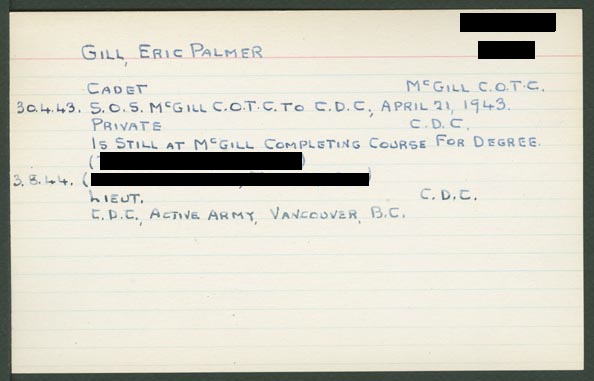 GILL, ERIC PALMER
CADET McGILL C.O.T.C.
30.4.43. S.O.S. McGILL C.O.T.C. TO C.D.C., APRIL 21, 1943.
PRIVATE C.D.C.
IS STILL AT McGILL COMPLETING COURSE FOR DEGREE.
( )
3.8.44. ( )
LIEUT. C.D.C.
C.D.C., ACTIVE ARMY, VANCOUVER, B.C.